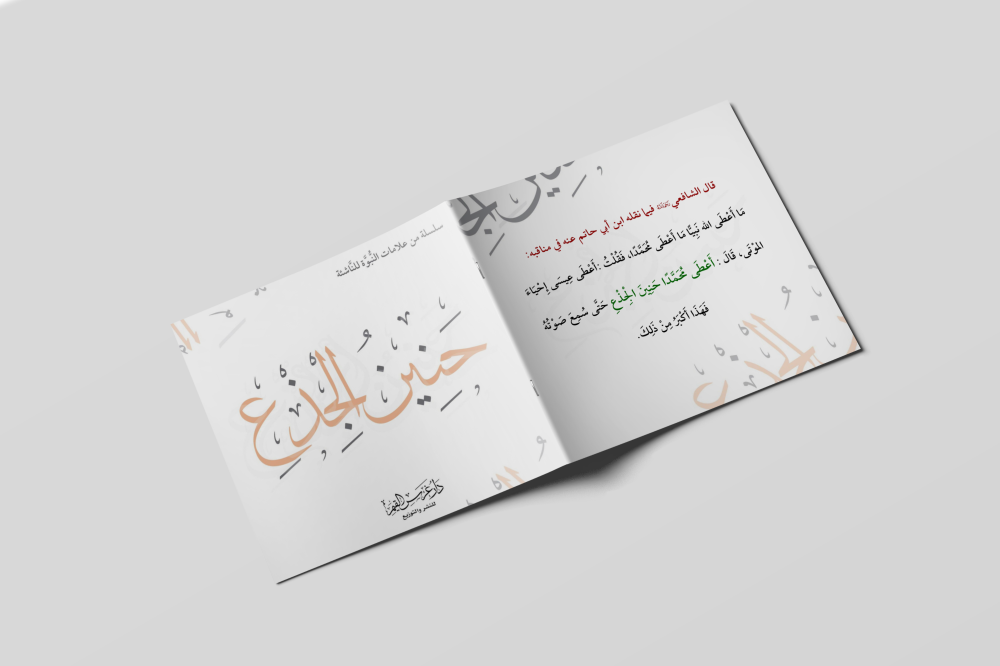 سلسلة من علامات النُّبُوَّة للنَّاشئة
حَنِينُ الْجِذْعِ
دار غراس القيم
للنشر والتوزيع
قال الشافعي رَحِمَهُ اللَّهُ فيما نقله ابن أبي حاتم عنه في مناقبه:
مَا أَعْطَى اللهُ نَبِيًّا مَا أَعْطَى مُحَمَّدًا، فَقُلْتُ: أَعْطَى عِيسَى إِحْيَاءَ
المَوْتَى، قَالَ: أَعْطَى مُحَمَّدًا حَنِينَ الْجِذْعِ حَتَّى سُمِعَ صَوْتُهُ
فَهَذَا أَكْبَرُ مِنْ ذَلِكَ.